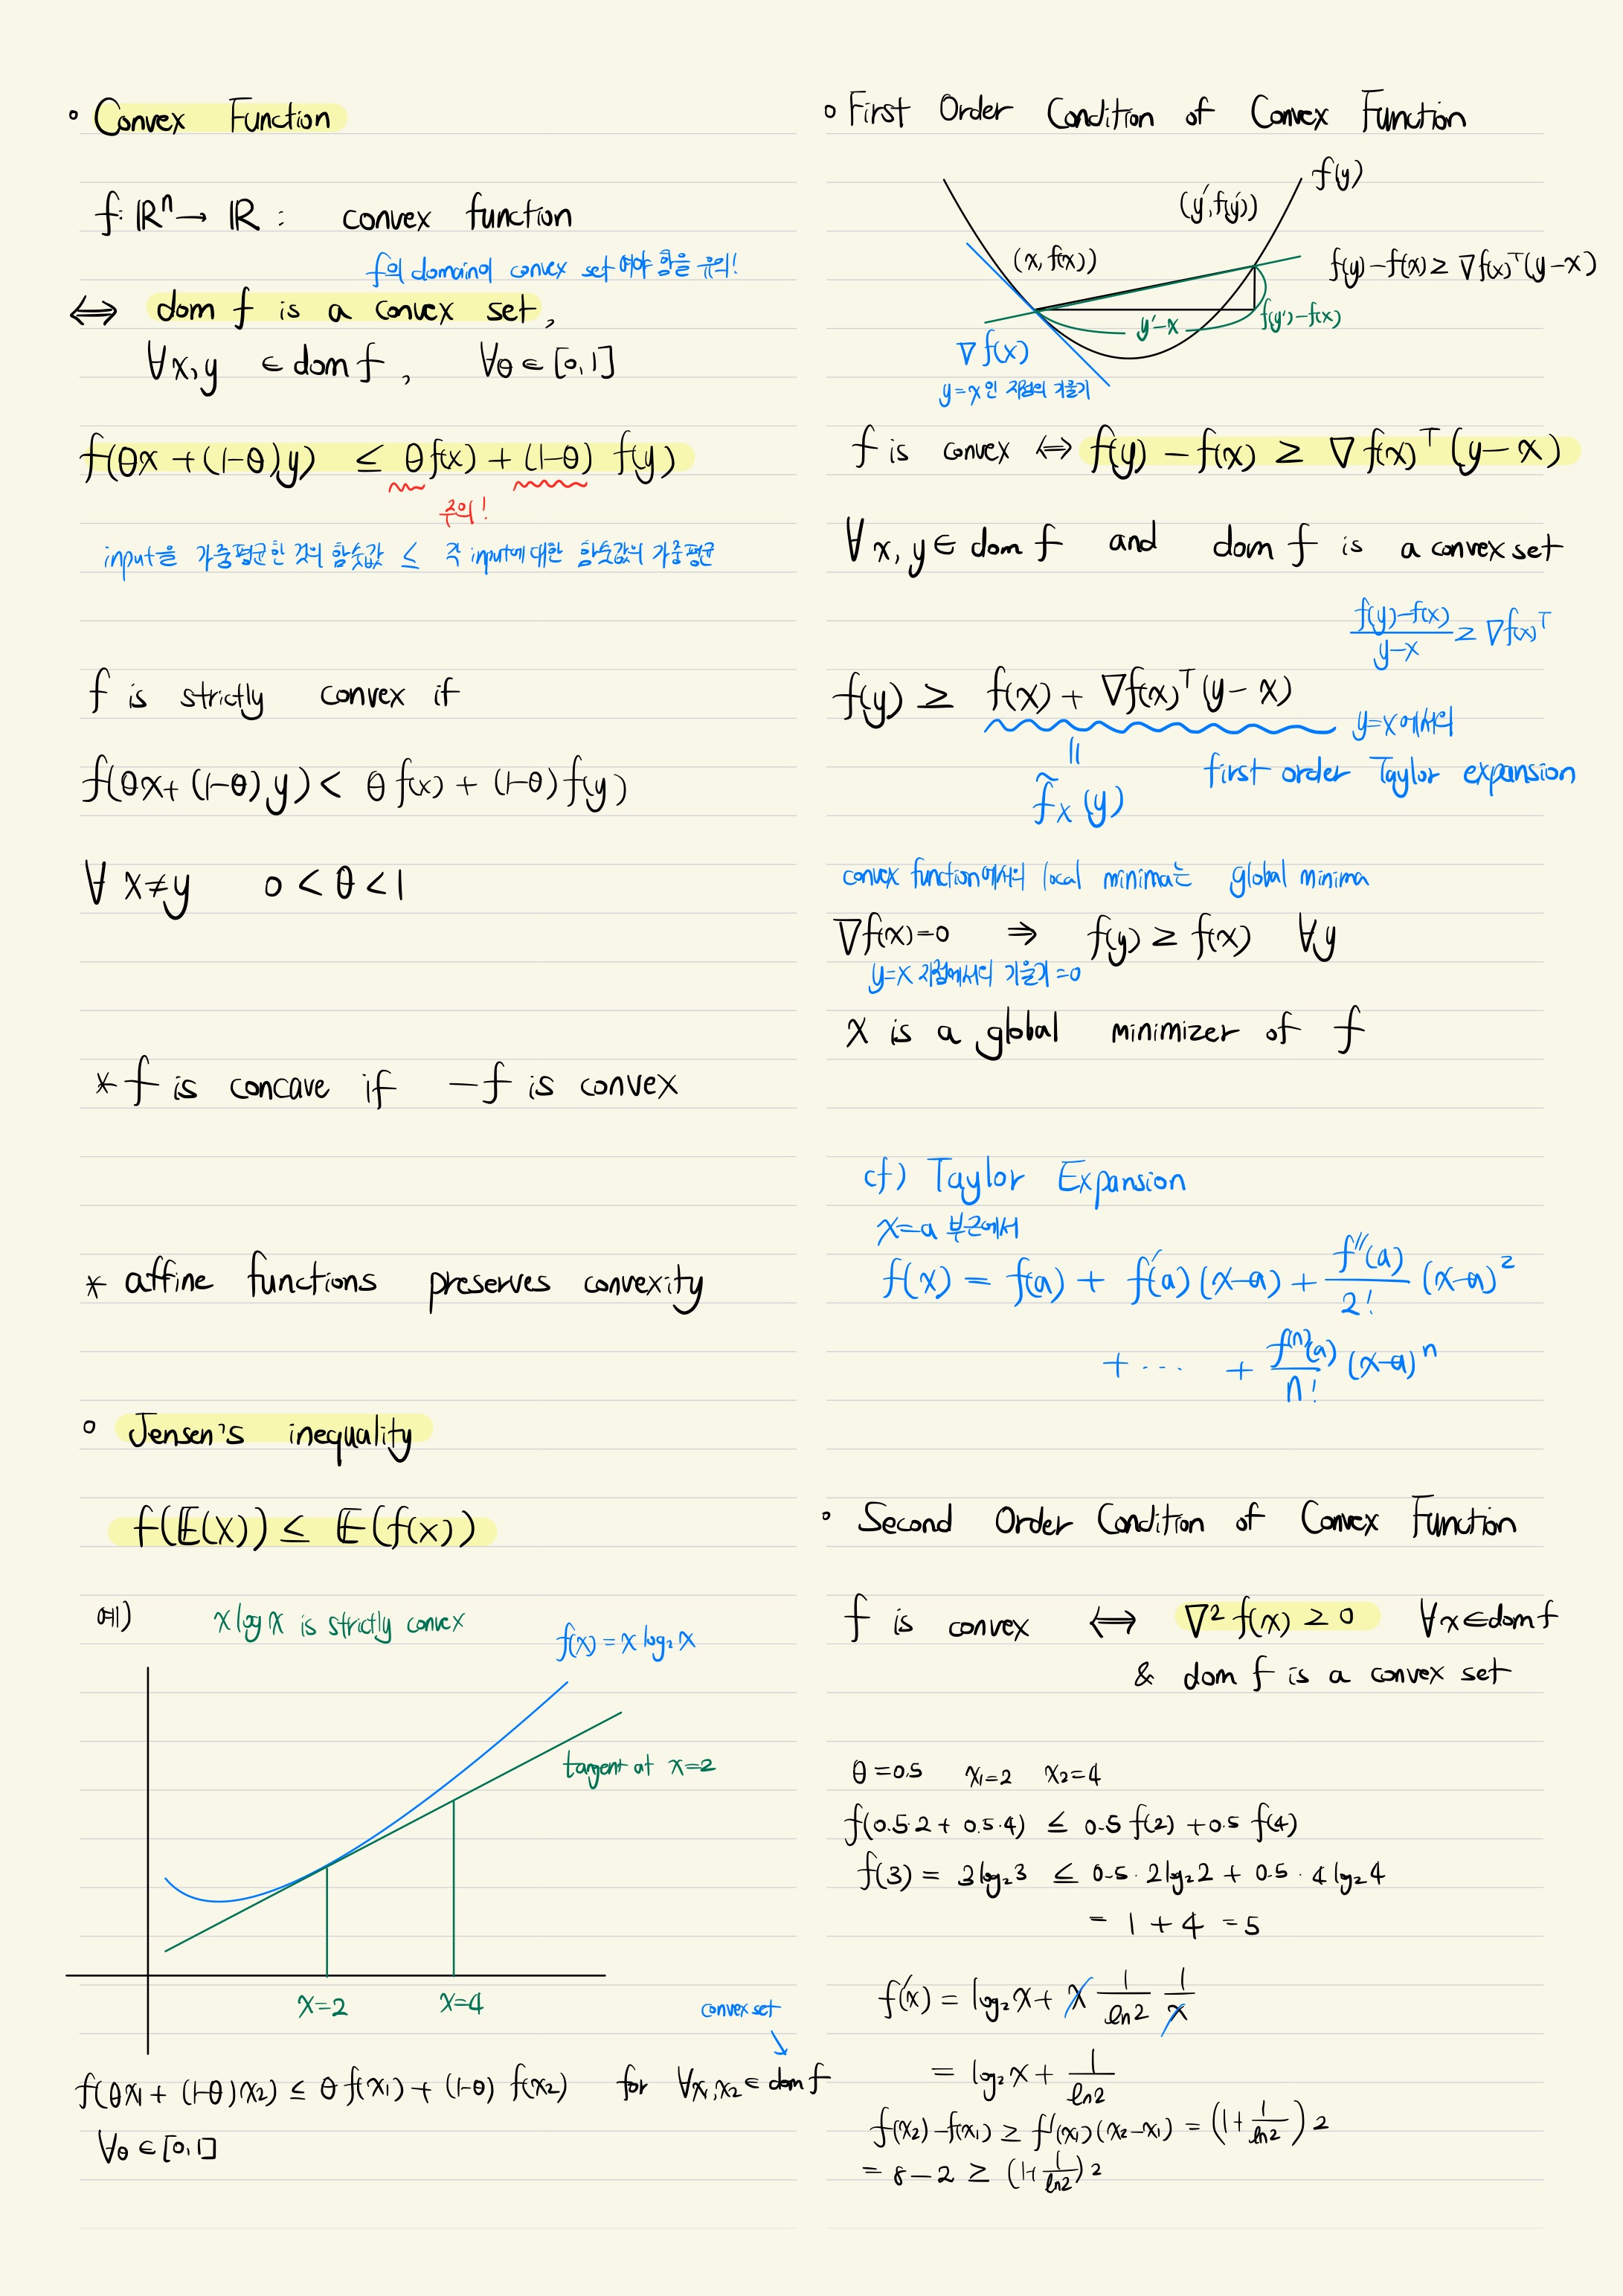 ∘ Convex Function
f: ℝⁿ → ℝ : convex function
f의 domain이 convex set 여야 함을 유의!
⇔ dom f is a convex set,
∀x,y ∈ dom f, ∀θ ∈ [0,1]
f(θx + (1-θ)y) ≤ θf(x) + (1-θ) f(y)
주의!
input을 가중평균한 것의 함숫값 ≤ 각 input에 대한 함숫값의 가중평균
f is strictly convex if
f(θx+ (1-θ)y) < θ f(x) + (1-θ) f(y)
∀ x≠y 0 < θ < 1
* f is concave if -f is convex
* affine functions preserves convexity
∘ Jensen's inequality
f(𝔼(X)) ≤ 𝔼(f(x))
예) x log x is strictly convex
f(x) = x log₂ x
tangent at x=2
x=2 x=4
convex set
f(θx₁ + (1-θ)x₂) ≤ θ f(x₁) + (1-θ) f(x₂) for ∀x₁,x₂ ∈ dom f
∀θ ∈ [0,1]
∘ First Order Condition of Convex Function
f(y)
(y', f(y'))
(x, f(x))
f(y) - f(x) ≥ ∇f(x)ᵀ(y-x)
y'-x
f(y')-f(x)
∇f(x)
y=x 인 지점의 기울기
f is convex ⇔ f(y) - f(x) ≥ ∇f(x)ᵀ (y-x)
∀x, y ∈ dom f and dom f is a convex set
(f(y)-f(x))/(y-x) ≥ ∇f(x)ᵀ
f(y) ≥ f(x) + ∇f(x)ᵀ(y-x)
y=x 에서의
first order Taylor expansion
=
f̃ₓ(y)
convex function에서의 local minima는 global minima
∇f(x)=0 ⇒ f(y) ≥ f(x) ∀y
y=x 지점에서의 기울기 =0
x is a global minimizer of f
cf) Taylor Expansion
x=a 부근에서
f(x) = f(a) + f'(a)(x-a) + f''(a)/2! (x-a)²
+ ··· + f⁽ⁿ⁾(a)/n! (x-a)ⁿ
∘ Second Order Condition of Convex Function
f is convex ⇔ ∇² f(x) ≥ 0 ∀x ∈ dom f
& dom f is a convex set
θ = 0.5 x₁=2 x₂=4
f(0.5·2 + 0.5·4) ≤ 0.5 f(2) + 0.5 f(4)
f(3) = 3log₂3 ≤ 0.5·2log₂2 + 0.5·4log₂4
= 1 + 4 = 5
f'(x) = log₂x + x 1/ln2 1/x
= log₂x + 1/ln2
f(x₂)-f(x₁) ≥ f'(x₁)(x₂-x₁) = (1+1/ln2)2
= 8-2 ≥ (1+1/ln2)2